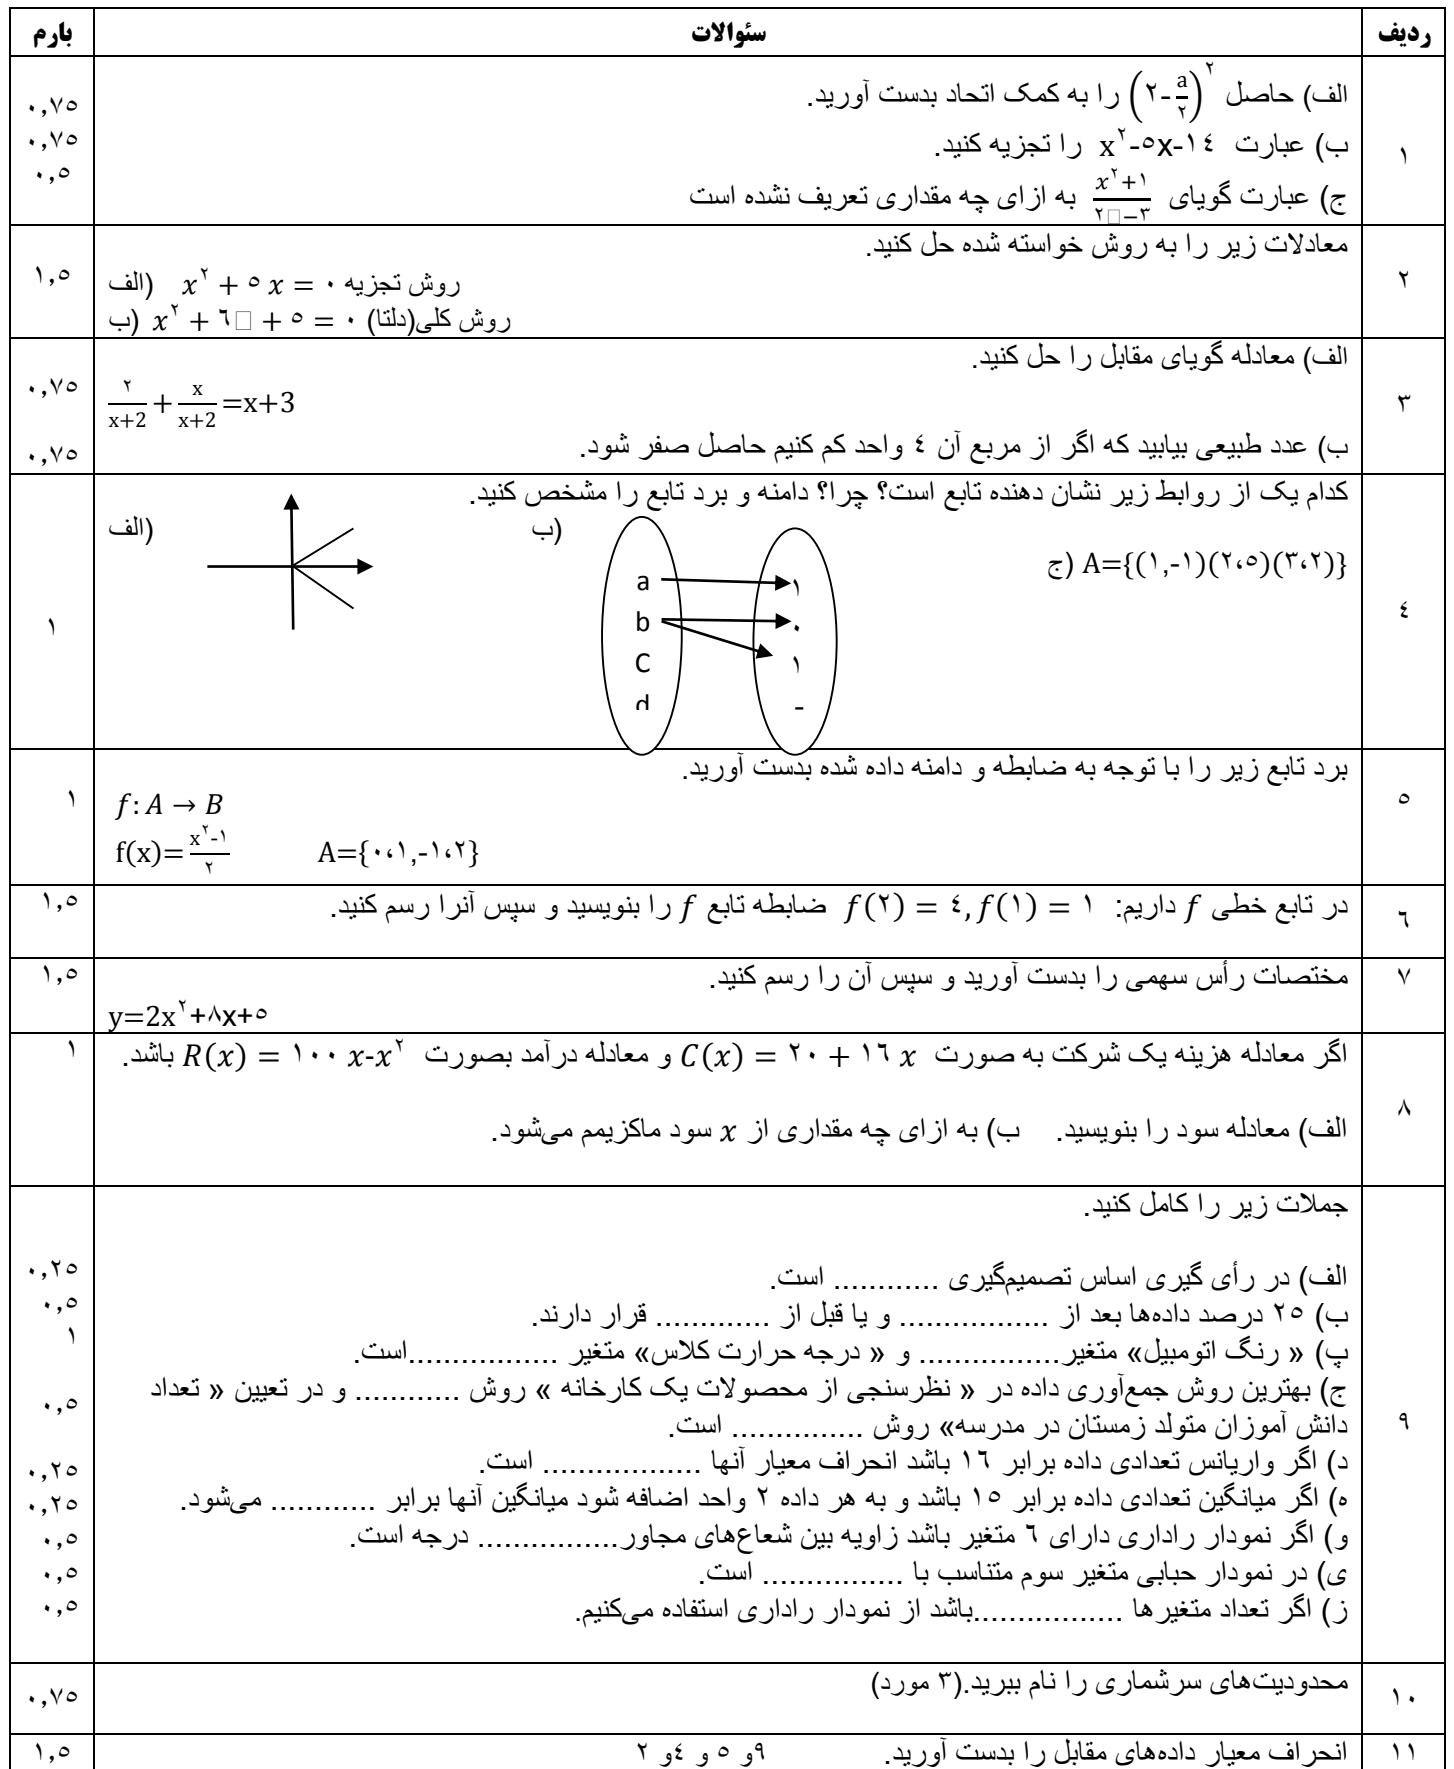 ردیف سئوالات بارم
۱
الف) حاصل (۲-a/۲)^۲ را به کمک اتحاد بدست آورید. ۰,۷۵
ب) عبارت x^۲-۵x-۱۴ را تجزیه کنید. ۰,۷۵
ج) عبارت گویای (x^۲+۱)/(۲□−۳) به ازای چه مقداری تعریف نشده است ۰,۵
۲
معادلات زیر را به روش خواسته شده حل کنید. ۱,۵
الف) x^۲ + ۵ x = ۰ روش تجزیه
ب) x^۲ + ۶□ + ۵ = ۰ روش کلی(دلتا)
۳
الف) معادله گویای مقابل را حل کنید. ۰,۷۵
۲/(x+2) + x/(x+2) =x+3
ب) عدد طبیعی بیابید که اگر از مربع آن ۴ واحد کم کنیم حاصل صفر شود. ۰,۷۵
۴
کدام یک از روابط زیر نشان دهنده تابع است؟ چرا؟ دامنه و برد تابع را مشخص کنید. ۱
الف)
ب)
ج) A={(۱,-۱)(۲،۵)(۳،۲)}
a ۱
b ۰
C ۱
d -
۵
برد تابع زیر را با توجه به ضابطه و دامنه داده شده بدست آورید. ۱
f: A → B
f(x)=(x^۲-۱)/۲ A={۰،۱,-۱،۲}
۶
در تابع خطی f داریم: f(۲) = ۴, f(۱) = ۱ ضابطه تابع f را بنویسید و سپس آنرا رسم کنید. ۱,۵
۷
مختصات رأس سهمی را بدست آورید و سپس آن را رسم کنید. ۱,۵
y=2x^۲+۸x+۵
۸
اگر معادله هزینه یک شرکت به صورت C(x) = ۲۰ + ۱۶ x و معادله درآمد بصورت R(x) = ۱۰۰ x-x^۲ باشد. ۱
الف) معادله سود را بنویسید. ب) به ازای چه مقداری از x سود ماکزیمم می‌شود.
۹
جملات زیر را کامل کنید.
الف) در رأی گیری اساس تصمیم‌گیری ............ است. ۰,۲۵
ب) ۲۵ درصد داده‌ها بعد از ................. و یا قبل از ............. قرار دارند. ۰,۵
پ) « رنگ اتومبیل» متغیر................ و « درجه حرارت کلاس» متغیر .................است. ۱
ج) بهترین روش جمع‌آوری داده در « نظرسنجی از محصولات یک کارخانه » روش ............ و در تعیین « تعداد
دانش آموزان متولد زمستان در مدرسه» روش ............... است. ۰,۵
د) اگر واریانس تعدادی داده برابر ۱۶ باشد انحراف معیار آنها .................. است. ۰,۲۵
ه) اگر میانگین تعدادی داده برابر ۱۵ باشد و به هر داده ۲ واحد اضافه شود میانگین آنها برابر ............ می‌شود. ۰,۲۵
و) اگر نمودار راداری دارای ۶ متغیر باشد زاویه بین شعاع‌های مجاور................ درجه است. ۰,۵
ی) در نمودار حبابی متغیر سوم متناسب با ................ است. ۰,۵
ز) اگر تعداد متغیرها .................باشد از نمودار راداری استفاده می‌کنیم. ۰,۵
۱۰
محدودیت‌های سرشماری را نام ببرید.(۳ مورد) ۰,۷۵
۱۱
انحراف معیار داده‌های مقابل را بدست آورید. ۹و ۵ و ۴و ۲ ۱,۵